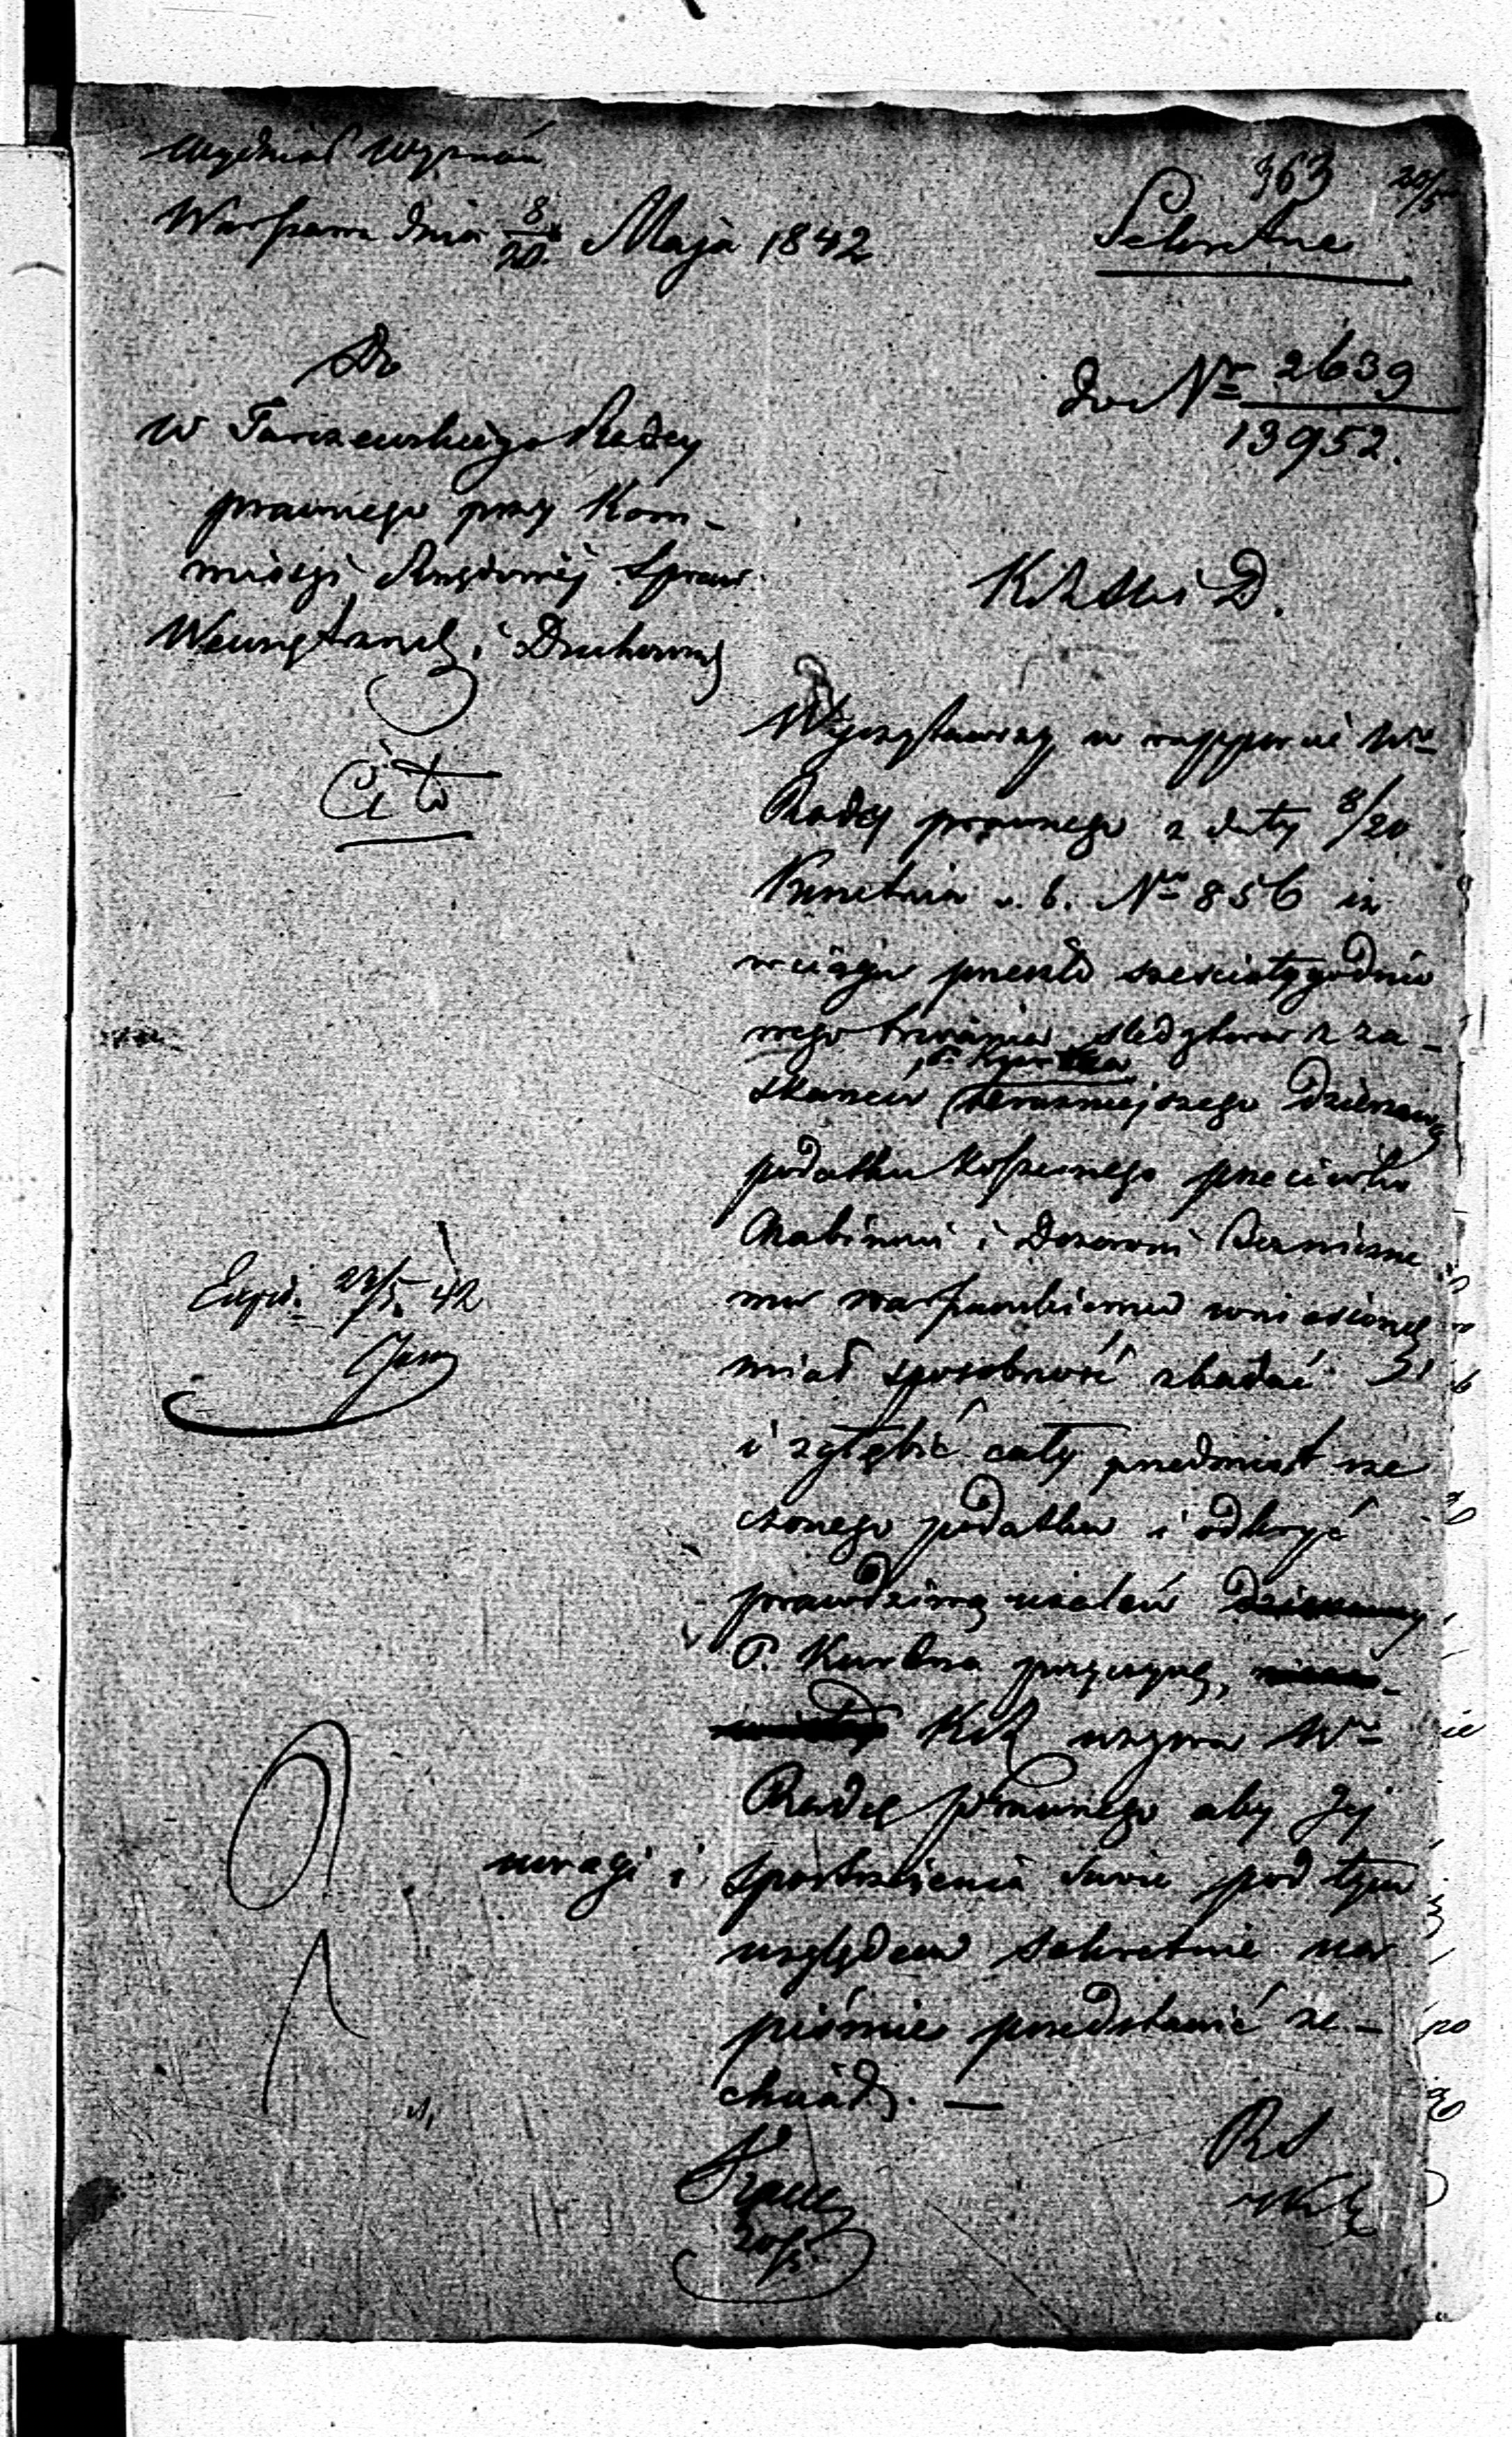 Wydział Wyznań
Warszawa dnia 8/20 Maja 1842
363 20/5
Sekretne
Do
W Tarczewskiego Radcy
prawnego przy Kom-
missyi Rządowéj Spraw
Wewnętrznych i Duchownych
Cito
do Nr 2639/13952.
Wyczytawszy w rapporcie Wo
Radcy prawnego z daty 8/20
Kwietnia r. b. Nr 856 iż
w ciągu przeszło sześciotygodnio
wego trwania śledztwa z za-
skarżeń teraźniejszego Dzierżawcy
podatku koszernego przeciwko
Rabinowi i Dozorowi Bóżnicze
mu warszawskiemu wniesionych
miał sposobność zbadać
i zgłębić cały przedmiot rze
czonego podatku i odkryć
prawdziwą użaleń
P. przyczynę,
KR wzywa Wo
Radcę prawnego aby Jej
uwagi i spostrzeżenia swoie pod tym
względem sekretnie na
piśmie przedstawić ze-
chciał. —
Exped. 23/5 42
20/5